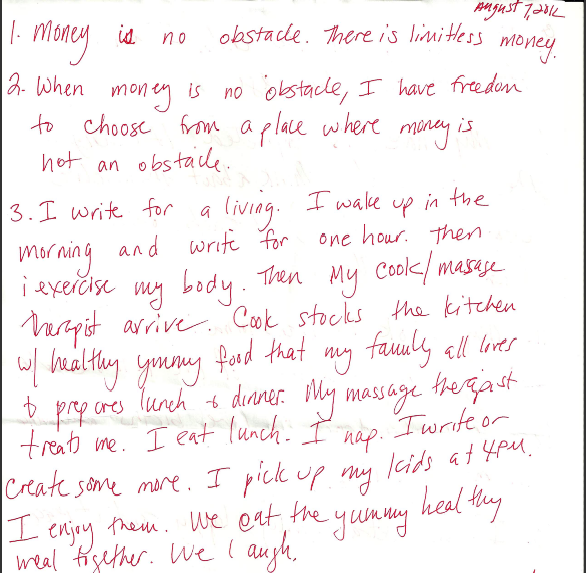 August 7, 2012
1. Money is no obstacle. There is limitless money.
2. When money is no obstacle, I have freedom
to choose from a place where money is
not an obstacle.
3. I write for a living. I wake up in the
morning and write for one hour. Then
i exercise my body. Then My cook/masage
therapist arrive. Cook stocks the kitchen
w/ healthy yummy food that my family all loves
& prepares lunch & dinner. My massage therapist
treats me. I eat lunch. I nap. I write or
create some more. I pick up my kids at 4pm.
I enjoy them. We eat the yummy healthy
meal together. We laugh.